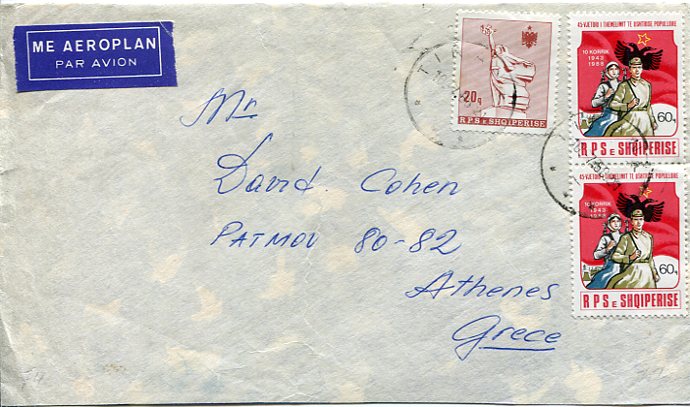 ME AEROPLAN
PAR AVION
20q
RPS E SHQIPERISE
45-VJETORI I THEMELIMIT TE USHTRISE POPULLORE
10 KORRIK
1943
1988
60q
RPS E SHQIPERISE
45-VJETORI I THEMELIMIT TE USHTRISE POPULLORE
10 KORRIK
1943
1988
60q
RPS E SHQIPERISE
Mr
David. Cohen
PATMOU 80-82
Athenes
Grece